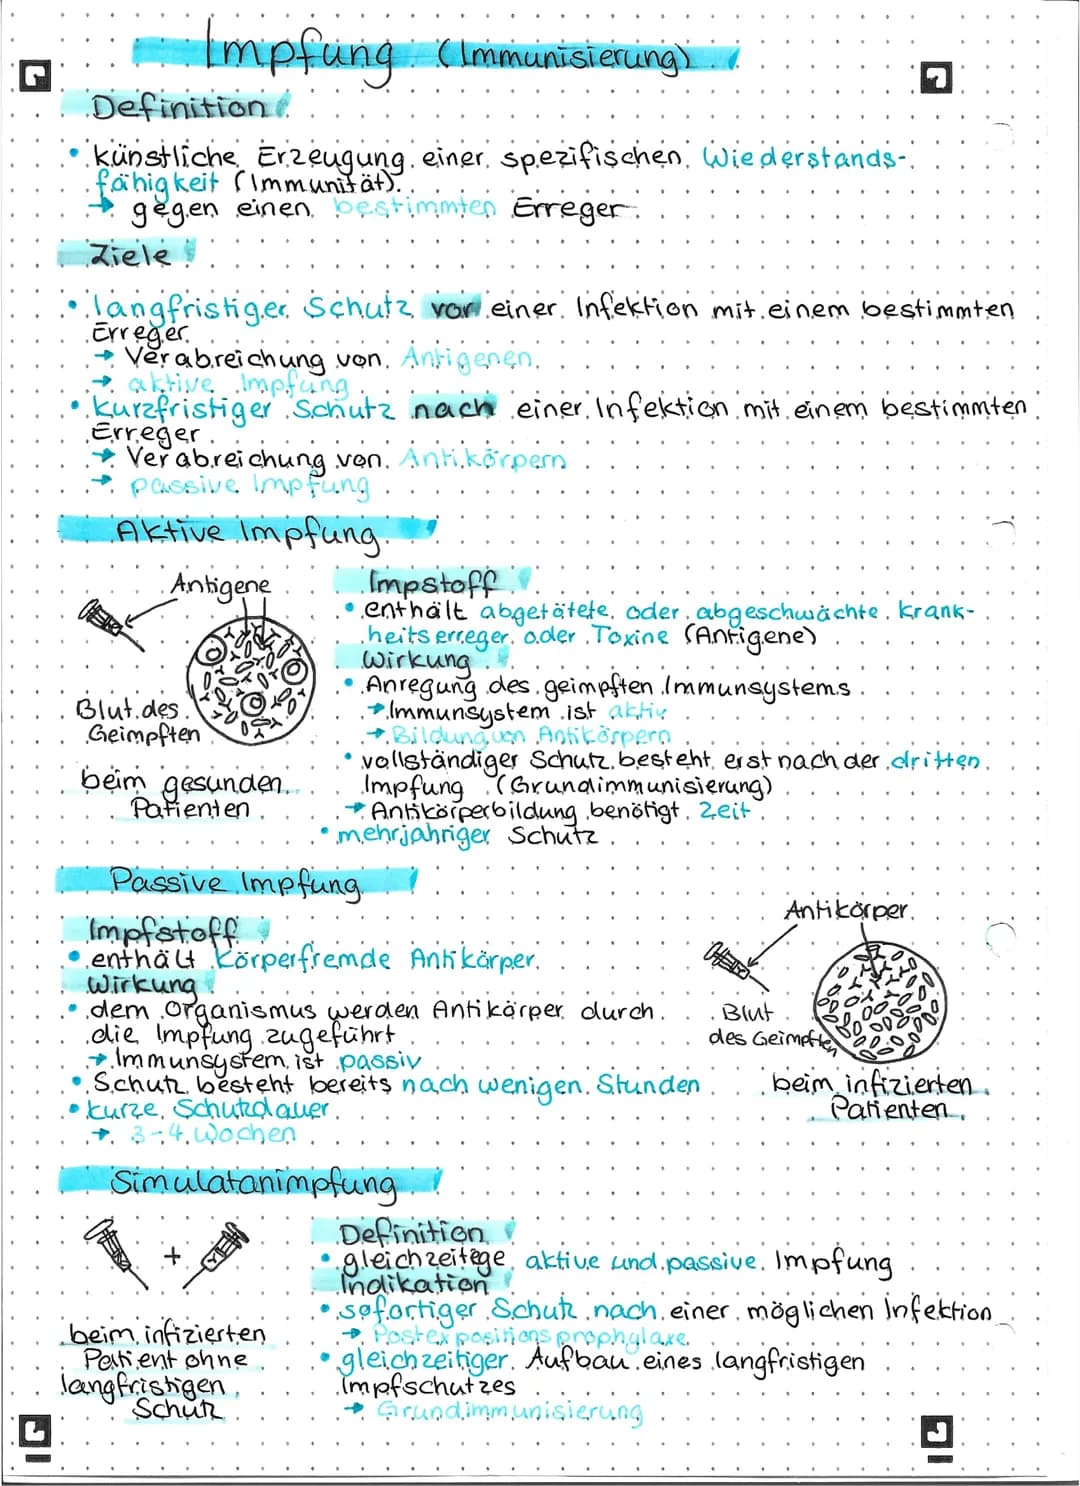 Impfung (Immunisierung)
Definition
• künstliche Erzeugung einer spezifischen Wiederstands-
fähigkeit (Immunität).
→ gegen einen bestimmten Erreger
Ziele
• langfristiger Schutz vor einer Infektion mit einem bestimmten
Erreger
→ Verabreichung von Antigenen
→ aktive Impfung
• kurzfristiger Schutz nach einer Infektion mit einem bestimmten
Erreger
→ Verabreichung von Antikörpern
→ passive Impfung
Aktive Impfung
Antigene
Blut des
Geimpften
beim gesunden
Patienten
Impstoff
• enthält abgetötete oder abgeschwächte Krank-
heitserreger oder Toxine (Antigene)
Wirkung
• Anregung des geimpften Immunsystems
→ Immunsystem ist aktiv
→ Bildung von Antikörpern
• vollständiger Schutz besteht erst nach der dritten
Impfung (Grundimmunisierung)
→ Antikörperbildung benötigt Zeit
• mehrjahriger Schutz
Passive Impfung
Impfstoff
• enthält körperfremde Antikörper
Wirkung
• dem Organismus werden Antikörper durch
die Impfung zugeführt
→ Immunsystem ist passiv
• Schutz besteht bereits nach wenigen Stunden
• kurze Schutzdauer
→ 3-4 Wochen
Antikörper
Blut
des Geimpften
beim infizierten
Patienten
Simulatanimpfung
+
beim infizierten
Patient ohne
langfristigen
Schutz
Definition
• gleichzeitege aktive und passive Impfung
Indikation
• sofortiger Schutz nach einer möglichen Infektion
→ Postexpositionsprophylaxe
• gleichzeitiger Aufbau eines langfristigen
Impfschutzes
→ Grundimmunisierung